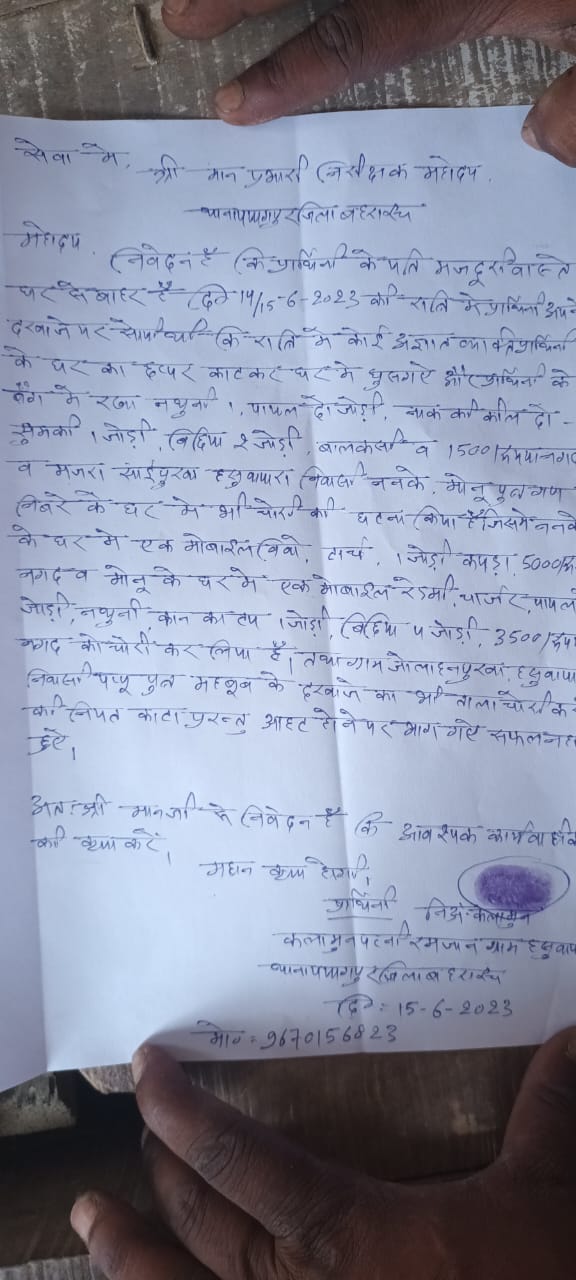 सेवा मे,
श्री मान प्रभारी निरीक्षक महोदय,
थाना पयागपुर जिला बहराइच
महोदय,
निवेदन है कि प्रार्थिनी के पति मजदूरी वास्ते
घर से बाहर है दि० 14/15-6-2023 की राति मे प्रार्थिनी अपने
दरवाजे पर सोयी थी कि राति मे कोई अज्ञात व्यक्ति प्रार्थिनी
के घर का छप्पर काटकर घर मे घुस गए और प्रार्थिनी के
बैग मे रखा नथुनी 1, पायल दो जोड़ी, नाक की कील दो -
झुमकी 1 जोड़ी, बिछिया 2 जोड़ी, व 1500/ रुपया नगद
व मजरा साईपुरवा हसुवापारा निवासी ननके, मोनू पुत्र गण
के घर मे भी चोरी की घटना किया है जिसमे ननके
के घर मे एक मोबाईल विवो, टार्च, 1 जोड़ी कपड़ा, 5000/
नगद व मोनू के घर मे एक मोबाईल रेडमी, चार्जर, पायल
जोड़ी, नथुनी, कान का टप 1 जोड़ी, बिछिया 4 जोड़ी, 3500/ रुपया
नगद को चोरी कर लिया है। तथा ग्राम जोलाहनपुरवा, हसुवापारा
निवासी पप्पू पुत्र महबूब के दरवाजे का भी ताला चोरी
की नियत काटा परन्तु आहट होने पर भाग गए सफल नही
हुए।
अतः श्री मान जी से निवेदन है कि आवश्यक कार्यवाही
की कृपा करें।
महान कृपा होगी।
प्रार्थिनी नि०अं० कलामुन
कलामुन पत्नी रमजान ग्राम हसुवापारा
थाना पयागपुर जिला बहराइच
दि० = 15-6-2023
मो० = 9670156823